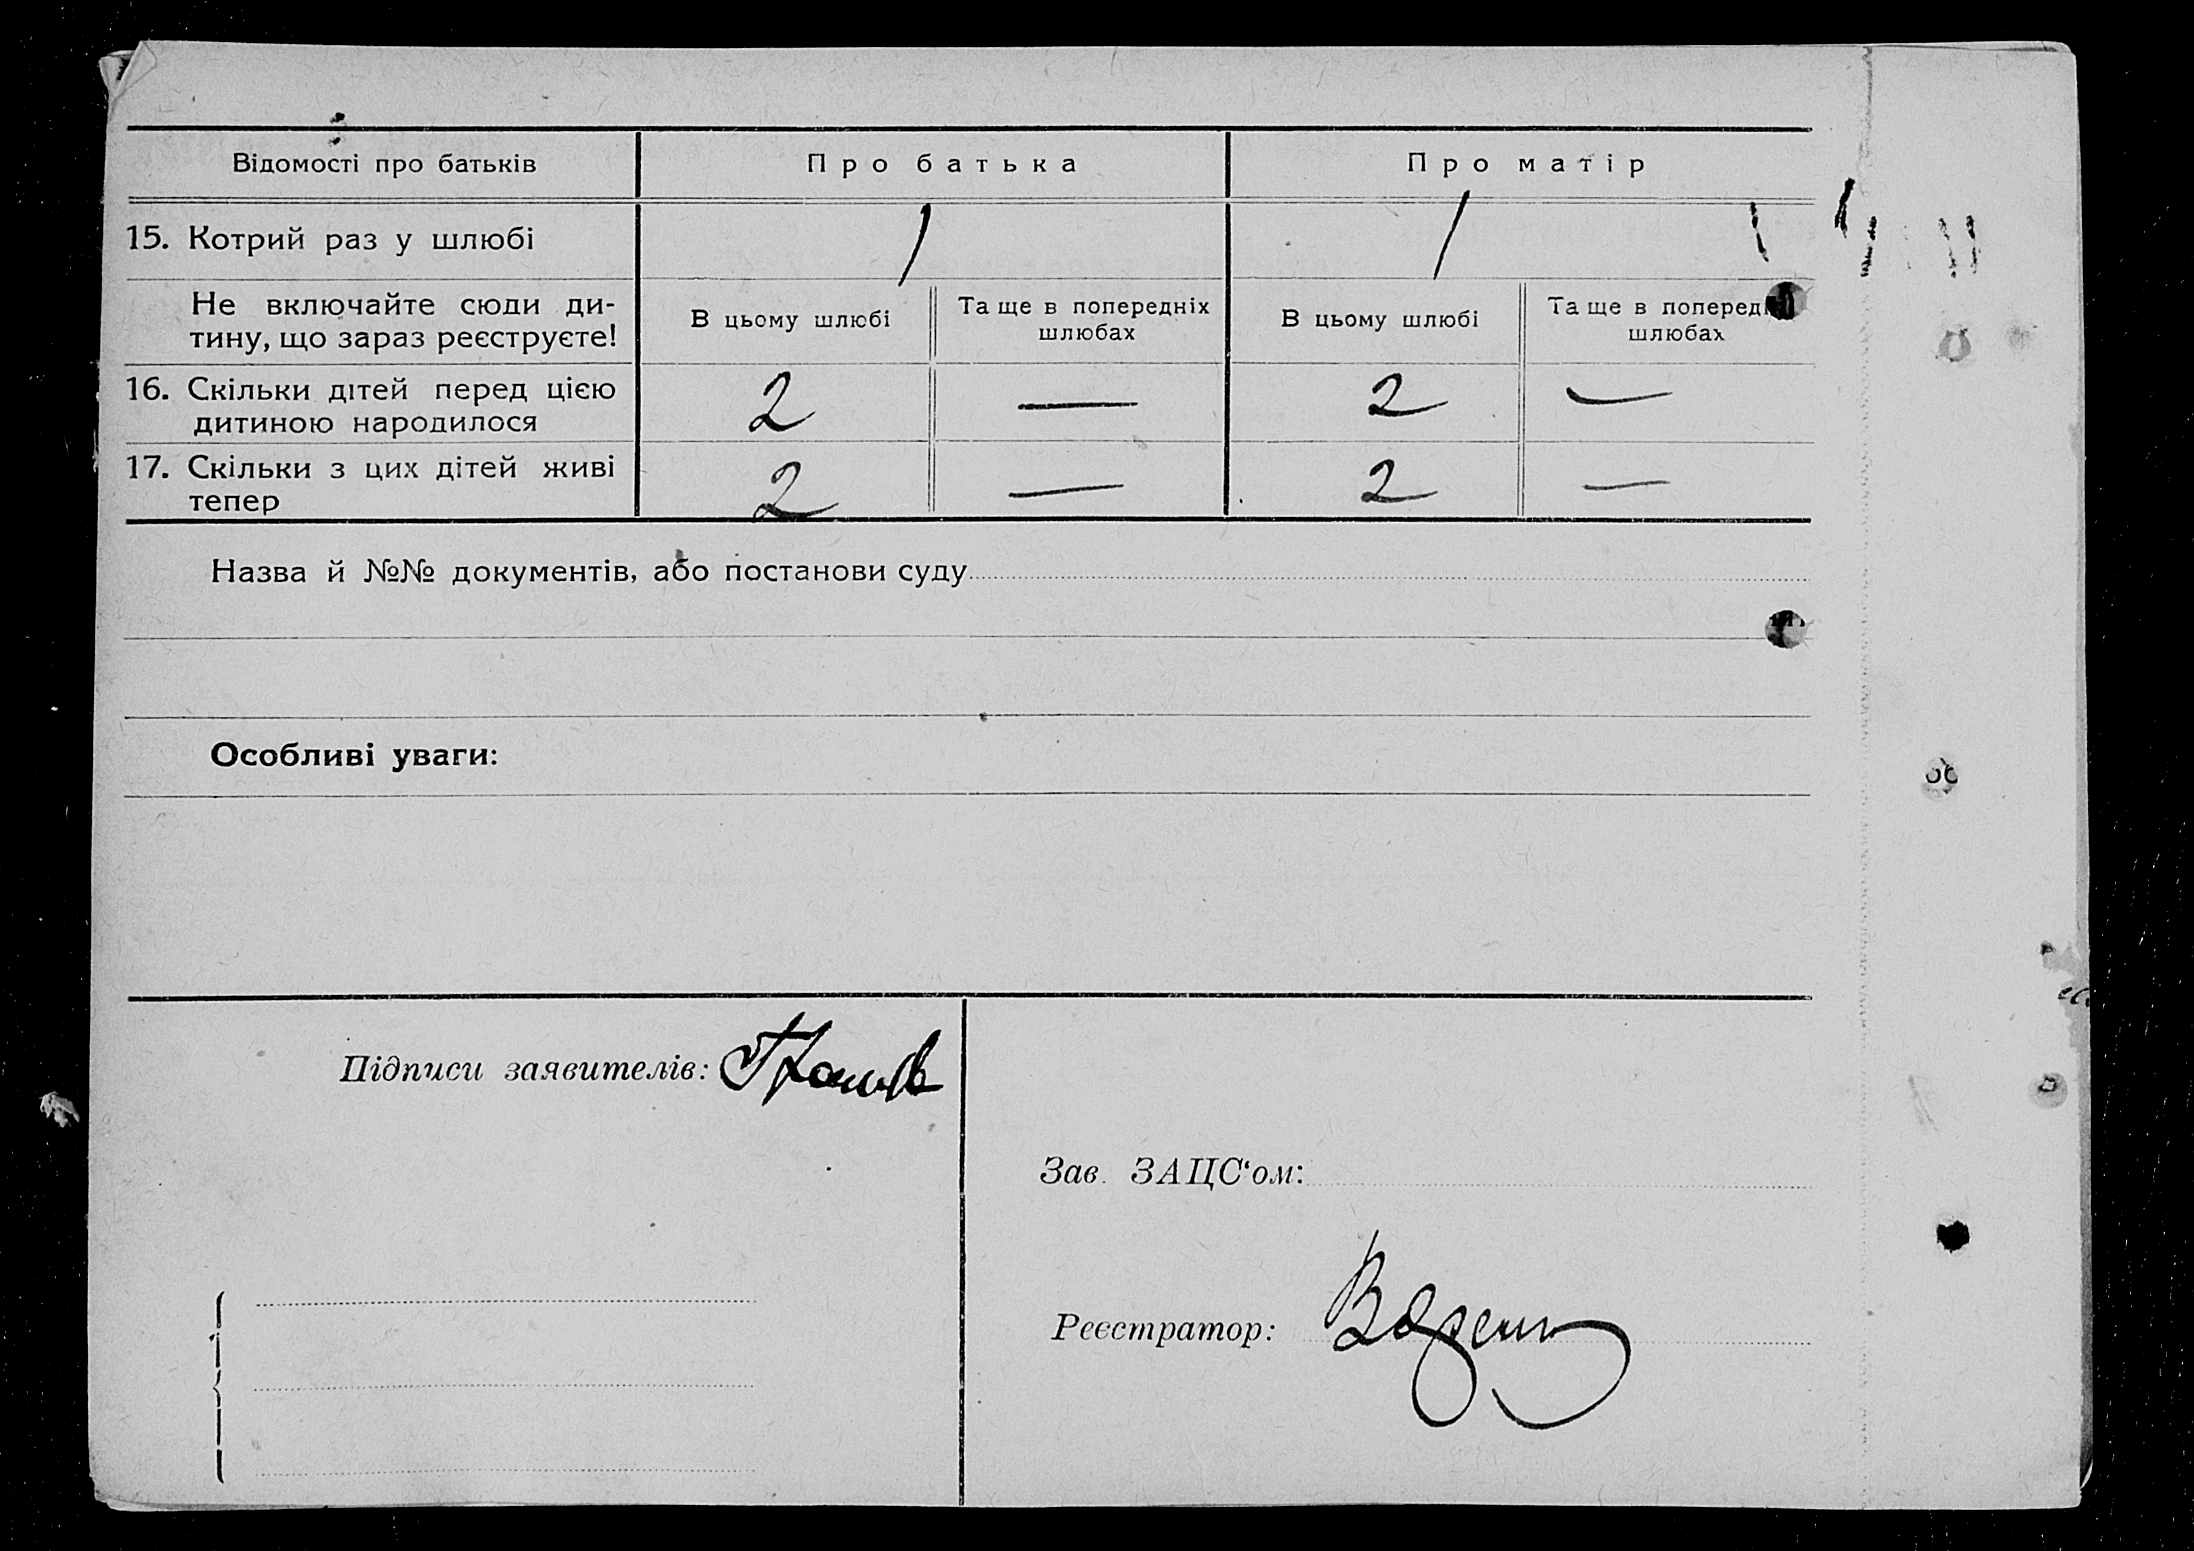 Відомості про батьків Про батька Про матір
15. Котрий раз у шлюбі 1 1
Не включайте сюди ди-
тину, що зараз реєструєте!
В цьому шлюбі
Та ще в попередніх
шлюбах
В цьому шлюбі
Та ще в поперед
шлюбах
16. Скільки дітей перед цією
дитиною народилося
2 — 2 —
17. Скільки з цих дітей живі
тепер
2 — 2 —
Назва й №№ документів, або постанови суду
Особливі уваги:
Підписи заявителів:
Зав. ЗАЦС‘ом:
Реєстратор: